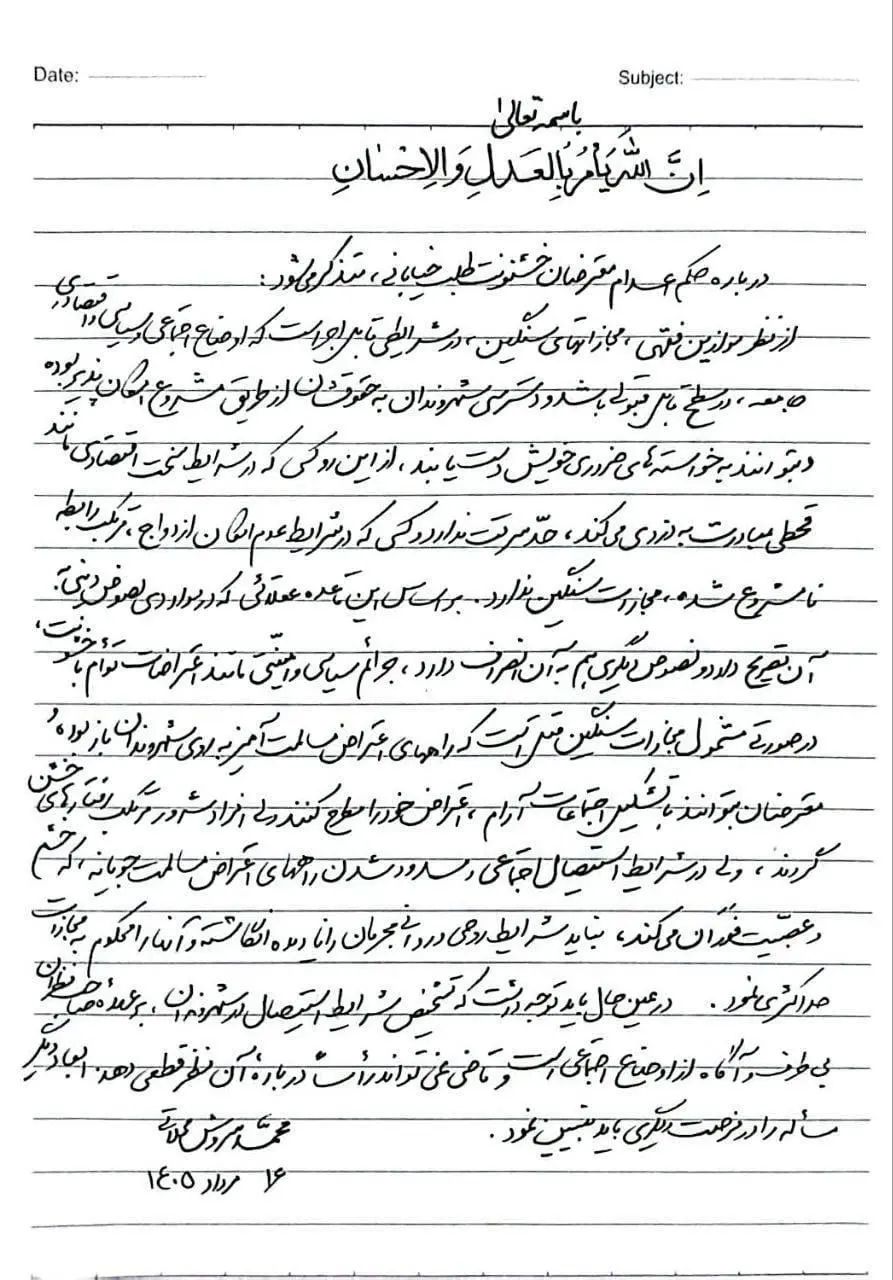 Date:
Subject:
باسمه تعالیٰ
اِنَّ اللّٰهَ یَأمُرُ بِالعَدلِ وَالاِحْسٰانِ
درباره حکم اعدام معترضان خشونت طلب خیابانی، متذکر می‌شود:
از نظر موازین فقهی، مجازاتهای سنگین، در شرایطی قابل اجراست که اوضاع اجتماعی و سیاسی و اقتصادی
جامعه، در سطح قابل قبولی باشد و دسترسی شهروندان به حقوقشان از طریق مشروع امکان پذیر بوده
و بتوانند به خواسته‌های ضروری خویش دست یابند، از این رو کسی که در شرایط سخت اقتصادی مانند
قحطی مبادرت به دزدی می‌کند، حدّ سرقت ندارد و کسی که در شرایط عدم امکان ازدواج، مرتکب رابطه
نامشروع شده، مجازات سنگین ندارد. بر اساس این قاعده عقلائی که در مواردی نصوص دینی به
آن تصریح دارد و نصوص دیگری هم به آن انصراف دارد، جرائم سیاسی و امنیّتی مانند اعتراضات توأم با خشونت،
در صورتی مشمول مجازات سنگین قتل است که راههای اعتراض مسالمت آمیز به روی شهروندان باز بوده و
معترضان بتوانند با تشکیل اجتماعات آرام، اعتراض خود را مطرح کنند ولی افراد شرور مرتکب رفتارهای خشن
گردند، ولی در شرایط استیصال اجتماعی و مسدود شدن راههای اعتراض مسالمت جویانه، که خشم
و عصبیّت فَوَران می‌کند، نباید شرایط روحی و روانی مجرمان را نادیده انگاشته و آنان را محکوم به مجازات
حداکثری نمود. در عین حال باید توجه داشت که تشخیص شرایط استیصال در شهروندان، بر عهدهٔ صاحب نظران
بی طرف و آگاه از اوضاع اجتماعی است و قاضی نمی تواند رأساً دربارهٔ آن نظر قطعی دهد. ابعاد دیگر
مسأله را در فرصت دیگری باید تبیین نمود.
محمد سروش محلاتی
۱۶ مرداد ۱۴۰۵